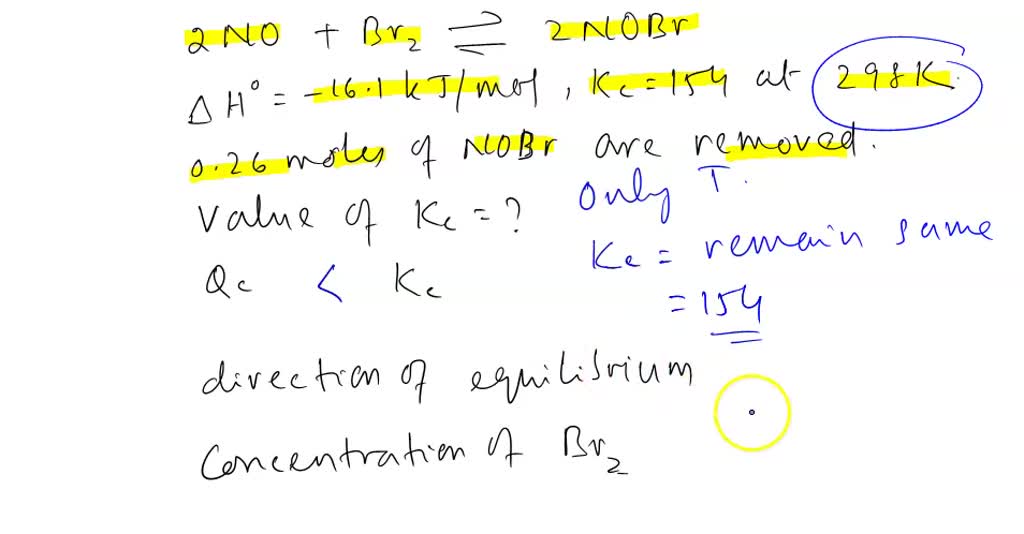 2NO + Br₂ ⇌ 2NOBr
ΔH° = -16.1 kJ/mol, Kc = 154 at 298K.
0.26 moles of NOBr are removed.
Value of Kc = ? Only T.
Kc = remain same
Qc < Kc
= 154
direction of equilibrium
Concentration of Br₂